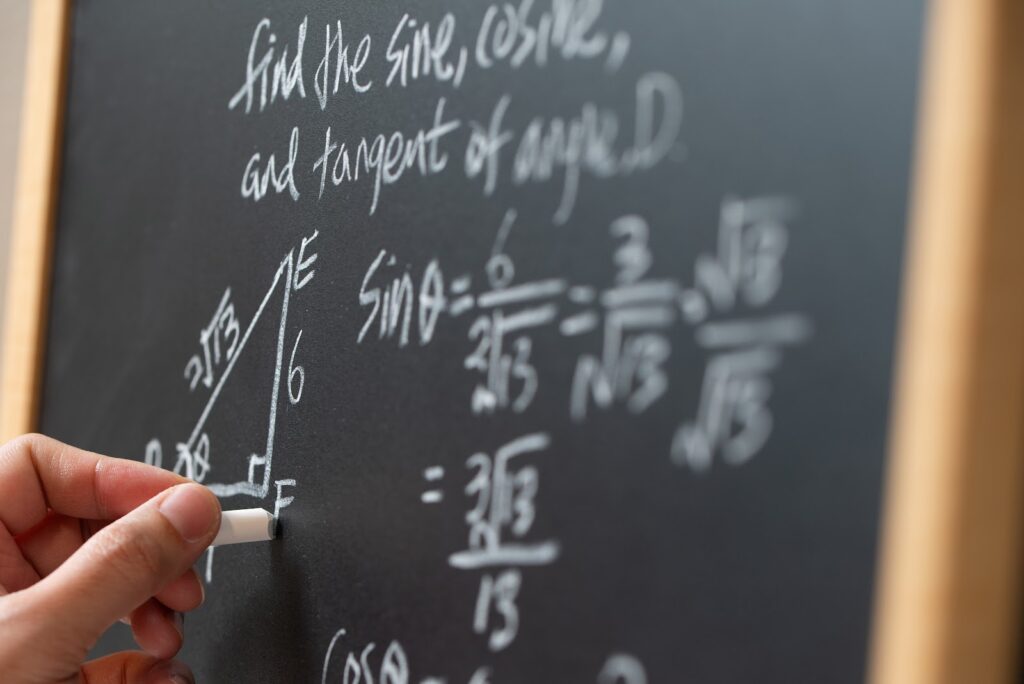 find the sine, cosine,
and tangent of angle D.
E
2√13
6
θ
F
sin θ = 6/2√13 = 3/√13 · √13/√13
= 3√13/13
cos θ